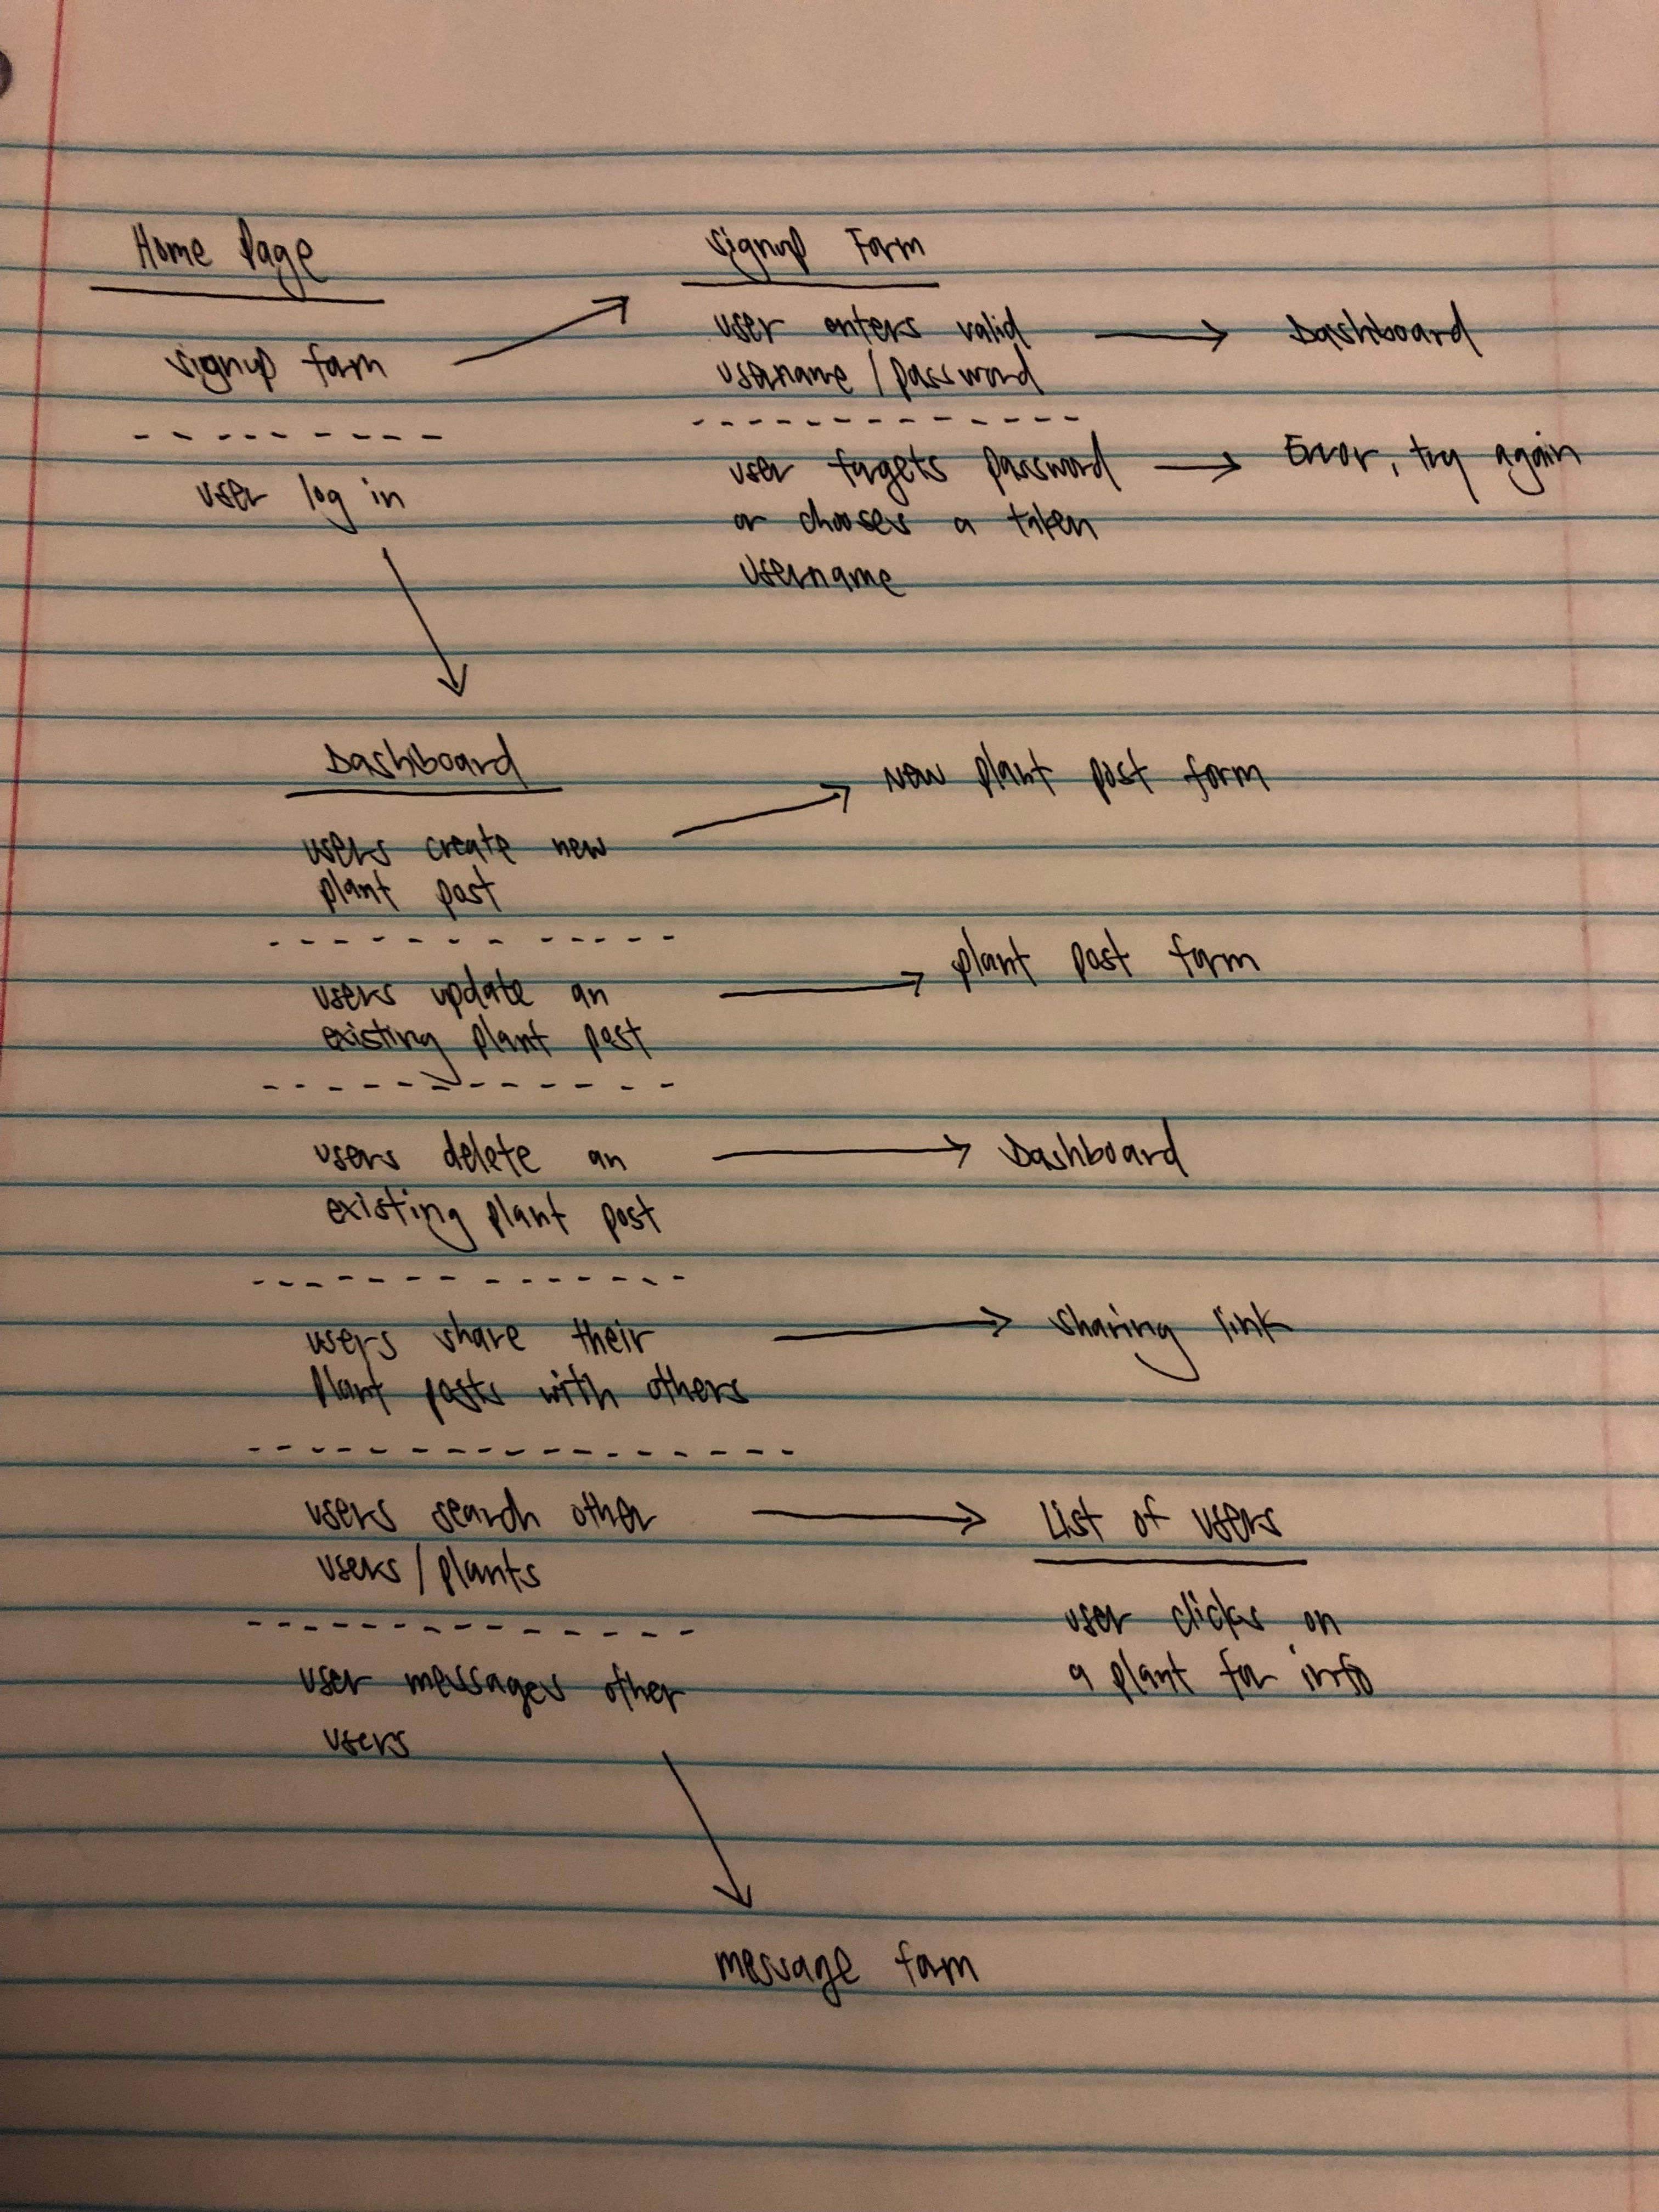 Home Page
signup form
user log in
Signup Form
user enters valid
username / password
Dashboard
user forgets password
or chooses a taken
username
Error, try again
Dashboard
users create new
plant post
New plant post form
users update an
existing plant post
plant post form
users delete an
existing plant post
Dashboard
users share their
plant posts with others
sharing link
users search other
users / plants
List of users
user clicks on
a plant for info
user messages other
users
message form